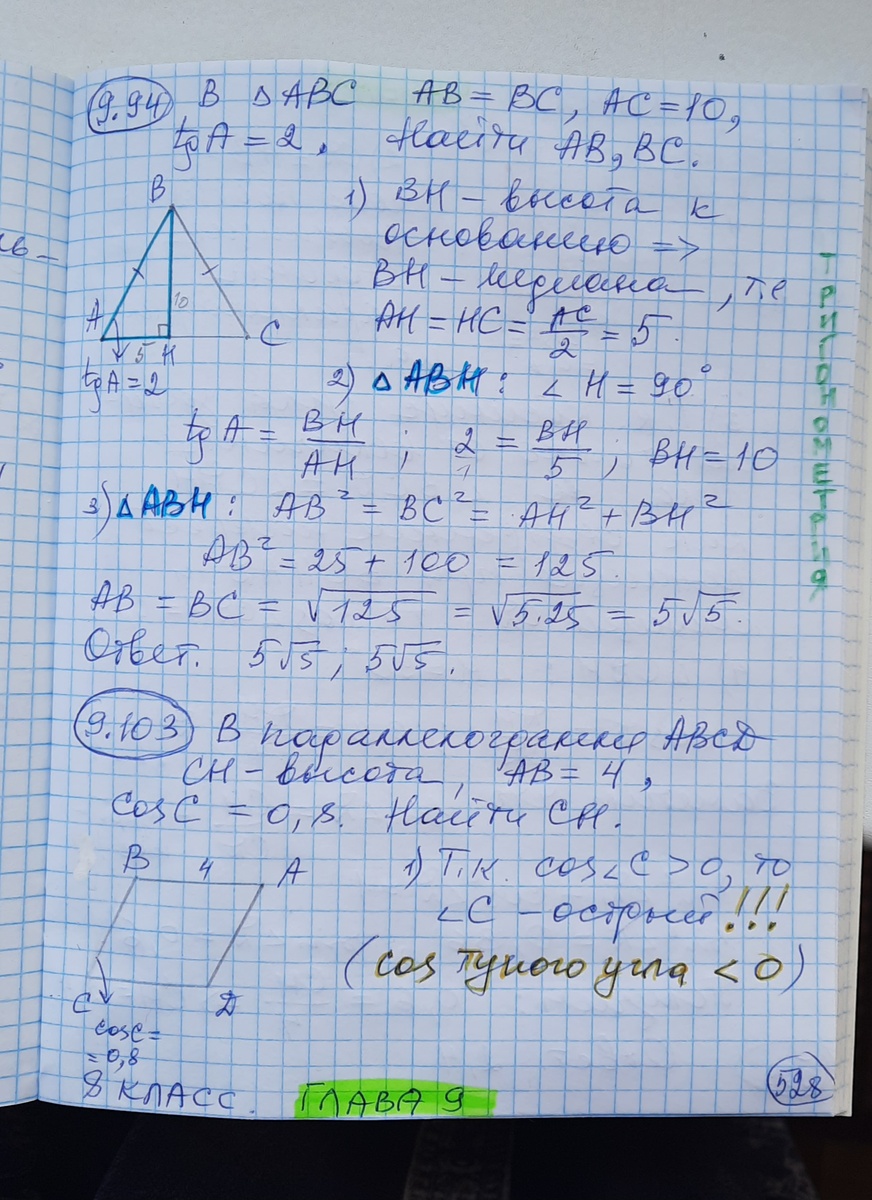 9.94 В △ABC AB = BC, AC = 10,
tg A = 2. Найти AB, BC.
B
A
10
5
H
C
tg A = 2
1) BH – высота к
основанию =>
BH – медиана, т.е
AH = HC = AC/2 = 5.
2) △ABH: ∠H = 90°
tg A = BH/AH ; 2/1 = BH/5 ; BH = 10
3) △ABH: AB² = BC² = AH² + BH²
AB² = 25 + 100 = 125.
AB = BC = √125 = √5·25 = 5√5.
Ответ. 5√5; 5√5.
9.103 В параллелограмме ABCD
CH – высота, AB = 4,
cos C = 0,8. Найти CH.
B 4 A
C D
cos C =
= 0,8
1) Т.к. cos∠C > 0, то
∠C – острый!!!
(cos тупого угла < 0)
8 КЛАСС. ГЛАВА 9
528
ТРИГОНОМЕТРИЯ